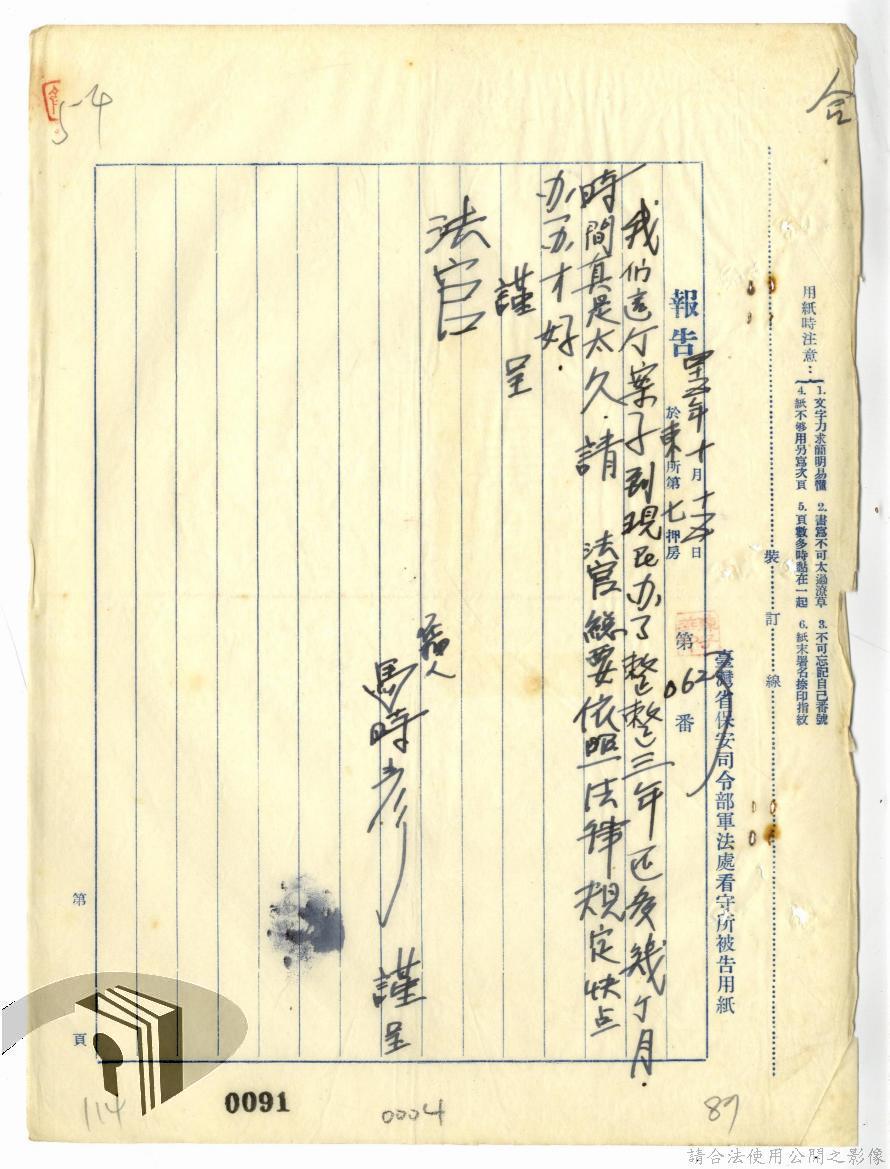 合
用紙時注意：
1.文字力求簡明易懂
2.書寫不可太過潦草
3.不可忘記自己番號
4.紙不够用另寫次頁
5.頁數多時黏在一起
6.紙末署名捺印指紋
裝訂線
臺灣省保安司令部軍法處看守所被告用紙
報告
四十五年十月十五日
於東所第七押房
第0627番
我们這亇案子到現在办了整整三年还多幾亇月.
時間真是太久.請 法官總要依照法律規定快点
办办才好.
謹呈
法官
馬時彥 謹呈
第 頁
54
114
0091
0004
89
請合法使用公開之影像